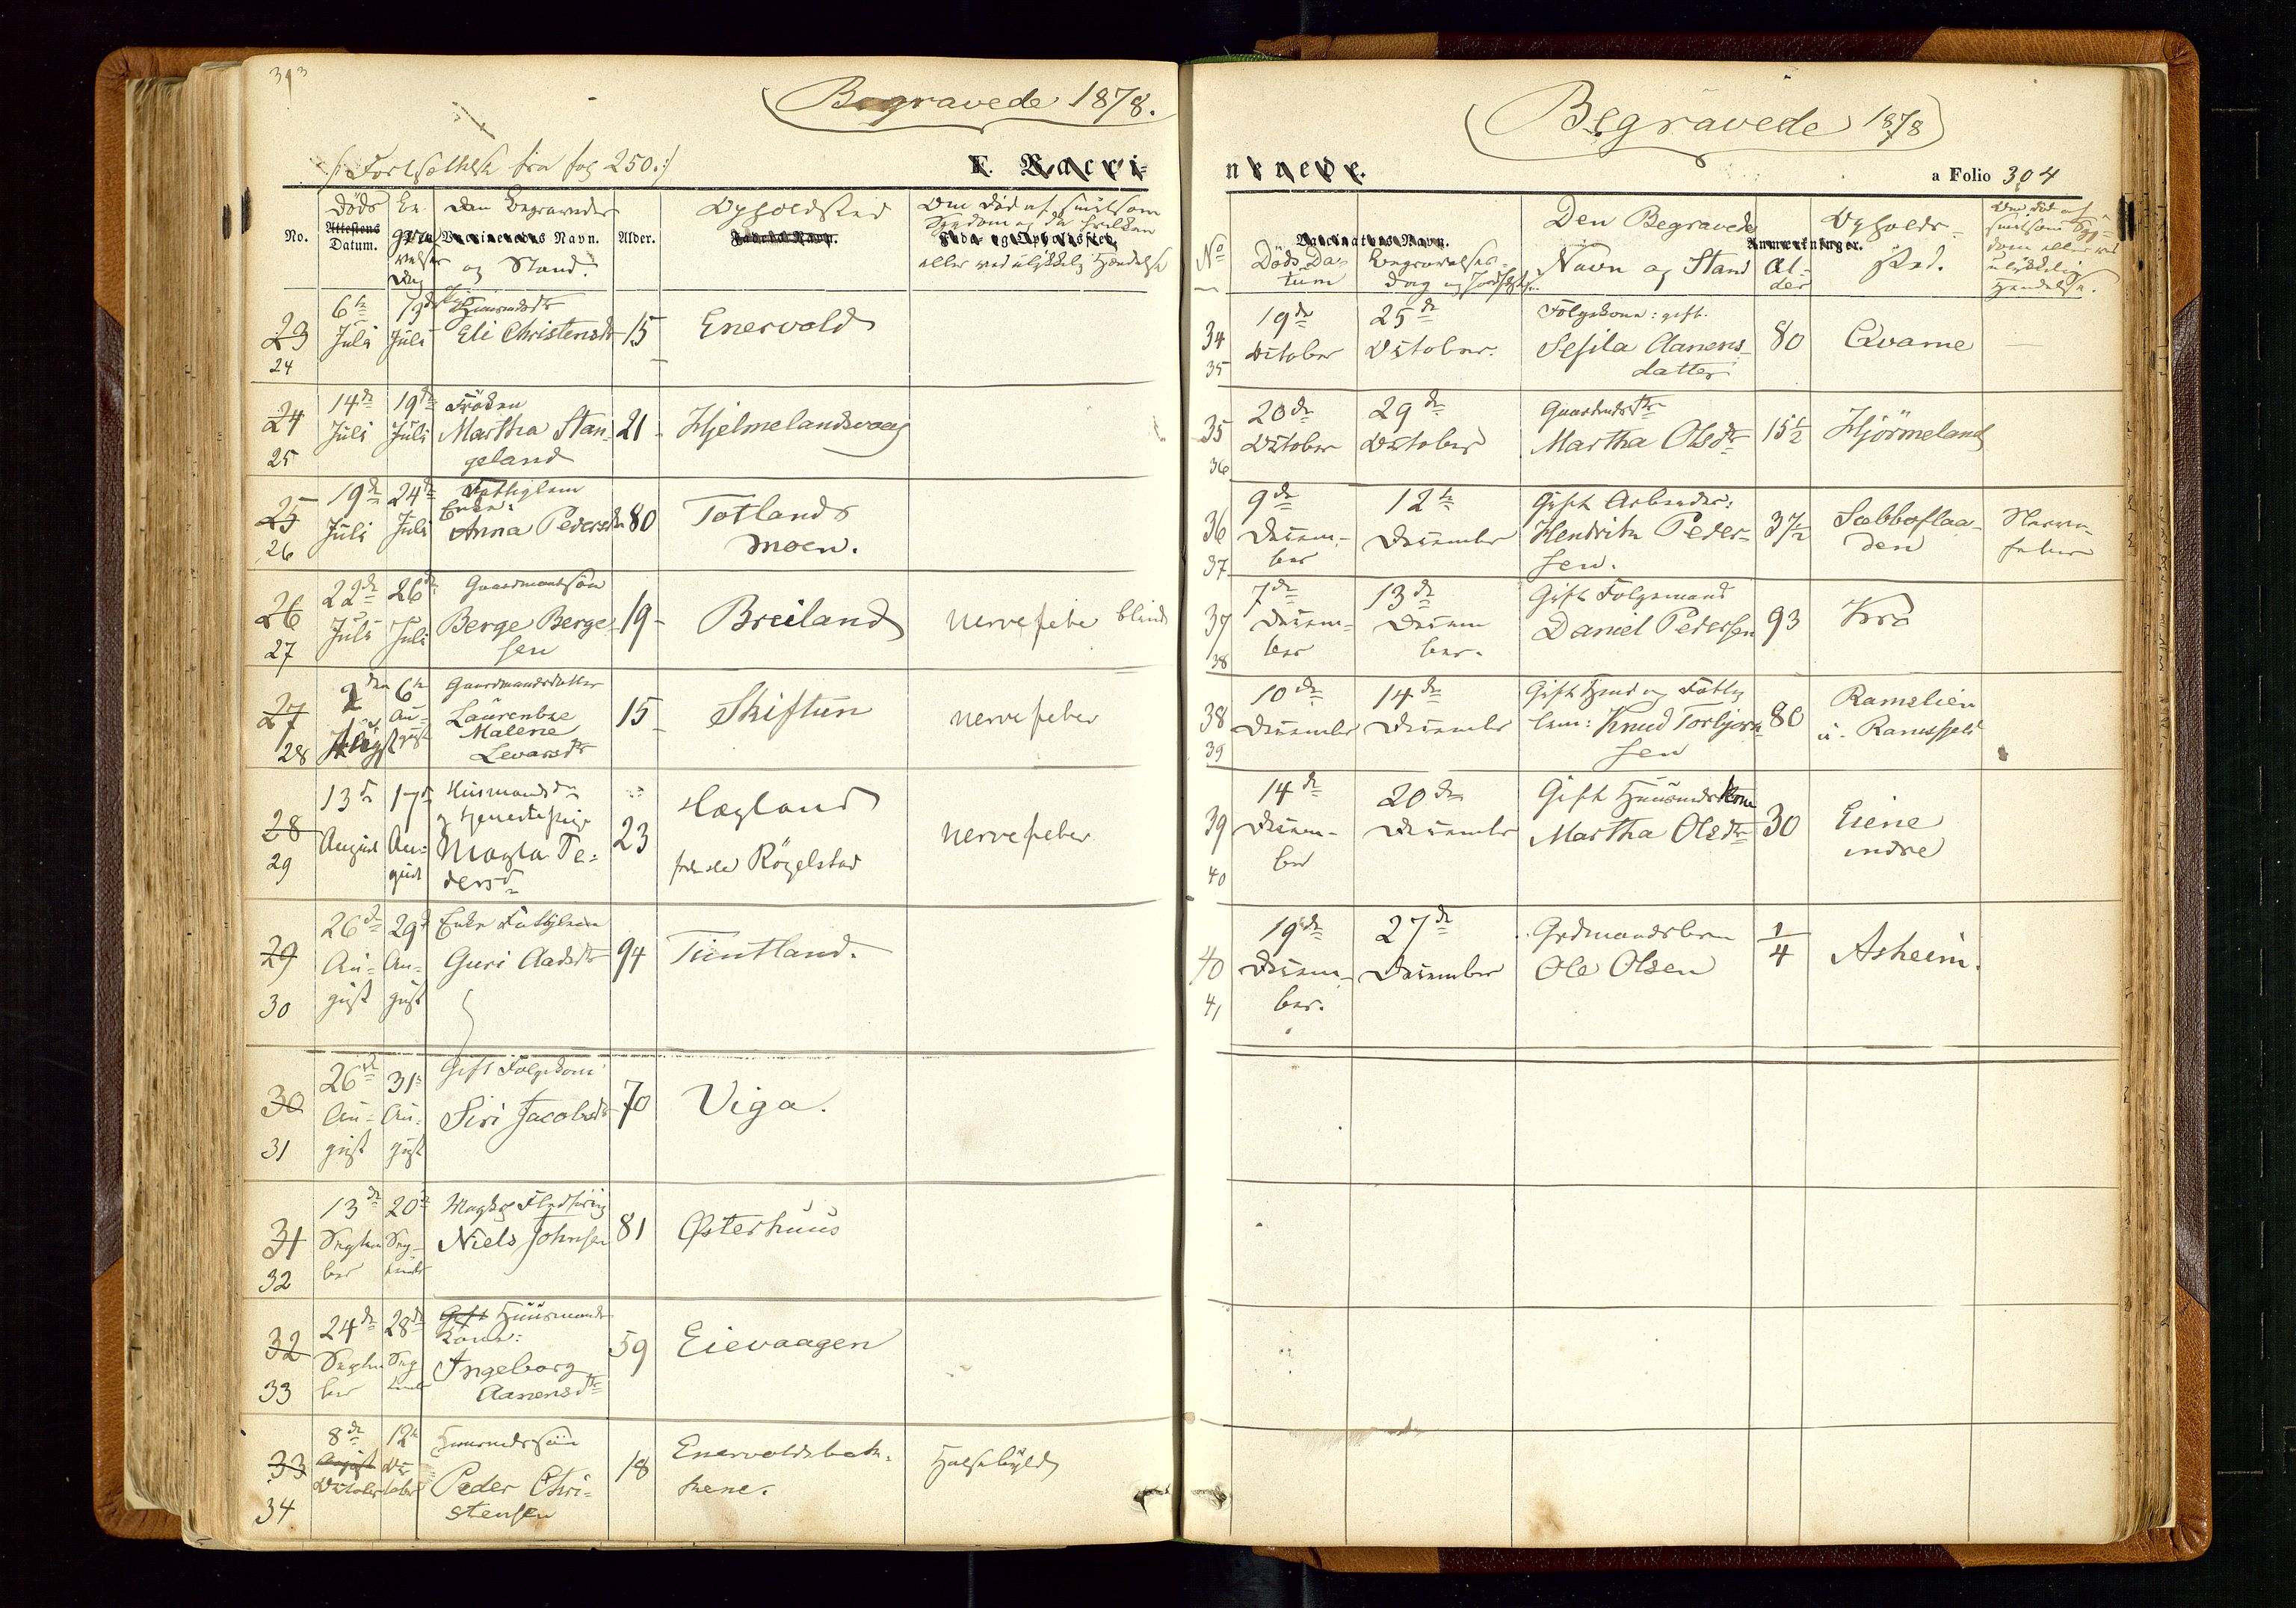 303
Begravede 1878.
(: Fortsættelse fra fog 250 :)
F. Vacci-
Döds Attestens Datum.
Be-
grav
velses
Dag
Den Begravedes
No.
Vaccinerendes Navn.
og Stand.
Alder.
Opholdsted
Faderens Navn.
Om Död af smitsom
Sygdom og da hvilken
Føde- og Opholdssted.
eller ved ulykkelig Hændelse
23
24
6te
Juli
Juli
Eli Christensdtr
15
Enervold
24
25
14de
Juli
19de
Juli
Fröken
Martha Stan-
geland
21
Hjelmelandsvaag
25
26
19de
Juli
24de
Juli
Fattiglem
Enke:
Anna Pedersdtr
80
Totlands
moen.
26
27
22de
Juli
26de
Juli
Gaardmandssön
Berge Berge-
sen
19
Breiland
nervefeber blind
27
28
2den
August
6te
Au-
gust
Gaardmandsdatter
Laurentze
Malene
Levarsdtr
15
Skiftun
nervefeber
28
29
13de
August
17de
Au-
gust
Husmandsdtr
og tjenestepige
Magla Pe-
dersdtr
23
Hagland
nervefeber
29
30
26de
Au-
gust
29de
Au-
gust
Enke Fattiglem
Guri Aadsdtr
94
Tuntland.
30
31
26de
Au-
gust
31te
Au-
gust
Gift Folgekone
Siri Jacobsdtr
70
Viga.
31
32
13de
Septem
ber
20de
Sep-
tember
Niels Johnsen
81
Østerhuus
32
33
24de
Septem
ber
28de
Sep
tember
Gift Huusmands
Kone:
Ingeborg
Aanensdtr
59
Eievaagen
33
34
8de
August
October
12te
Oc
tober
Huusmandssön
Peder Chri-
stensen
18
Enervoldsbak-
kene.
Halsebyld
Begravede 1878
nerede.
a Folio 304
No
Döds Da-
tum
Vaccinatørens Navn.
Begravelses-
Dag og Jordfæstelse
Den Begravede
Navn og Stand
Anmærkninger.
Al-
der
Opholds-
sted.
Om Död af
smitsom Syg-
dom eller ved
ulykkelig
Hændelse.
34
35
19de
October
25de
October.
Folgekone: gift.
Sesila Aanens-
datter
80
Qvame
—
35
36
20de
October
29de
October
Gaardmdsdtr
Martha Olsdtr
15½
Hjörmeland
36
37
9de
Decem-
ber
12te
December
Gift Arbeider:
Hendrik Peder-
sen.
37½
Sabboflaa-
den
Nerve-
feber
37
38
7de
Decem-
ber
13de
Decem
ber.
Gift Folgemand
Daniel Pedersen
93
Kro
38
39
10de
December
14de
December
Gift Hmd og Fattig
lem: Knud Torbjörn-
sen
80
Ramslien
u. Ramsfjeld
39
40
14de
Decem-
ber
20de
December
Gift Huusmdskone
Martha Olsdtr
30
Eiene
indre
40
41
19de
Decem-
ber.
27de
December
Grdmandsbarn
Ole Olsen
1/4
Asheim.